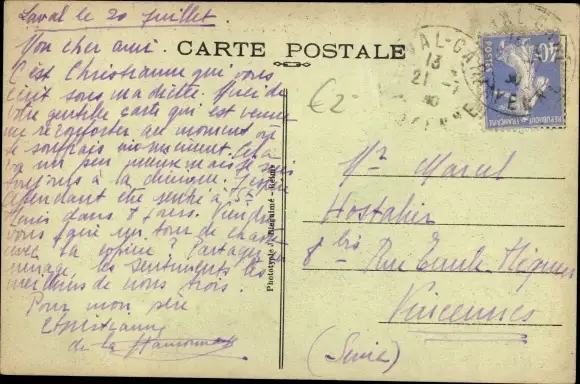 Laval le 20 Juillet.
Mon cher ami.
C'est Christianne qui vous
écrit sous ma dictée. Merci de
votre gentille carte qui est venue
me réconforter au moment où
je souffrais
va un peu mieux mais je suis
toujours à la clinique. J'espère
cependant être rentré à St
dans 7 jours. Viendrez
vous faire un tour de chasse
avec la copine? Partagez en
ménage, les sentiments les
meilleurs de nous trois.
Pour mon père
Christianne
de la
CARTE POSTALE
Phototype - Reims
€2-
LAVAL-GARE
13
21 -7
40
MAYENNE
POSTES
REPUBLIQUE FRANÇAISE
Mr Marcel
Hostalier
8 bis Rue Emile
Vincennes
(Seine)